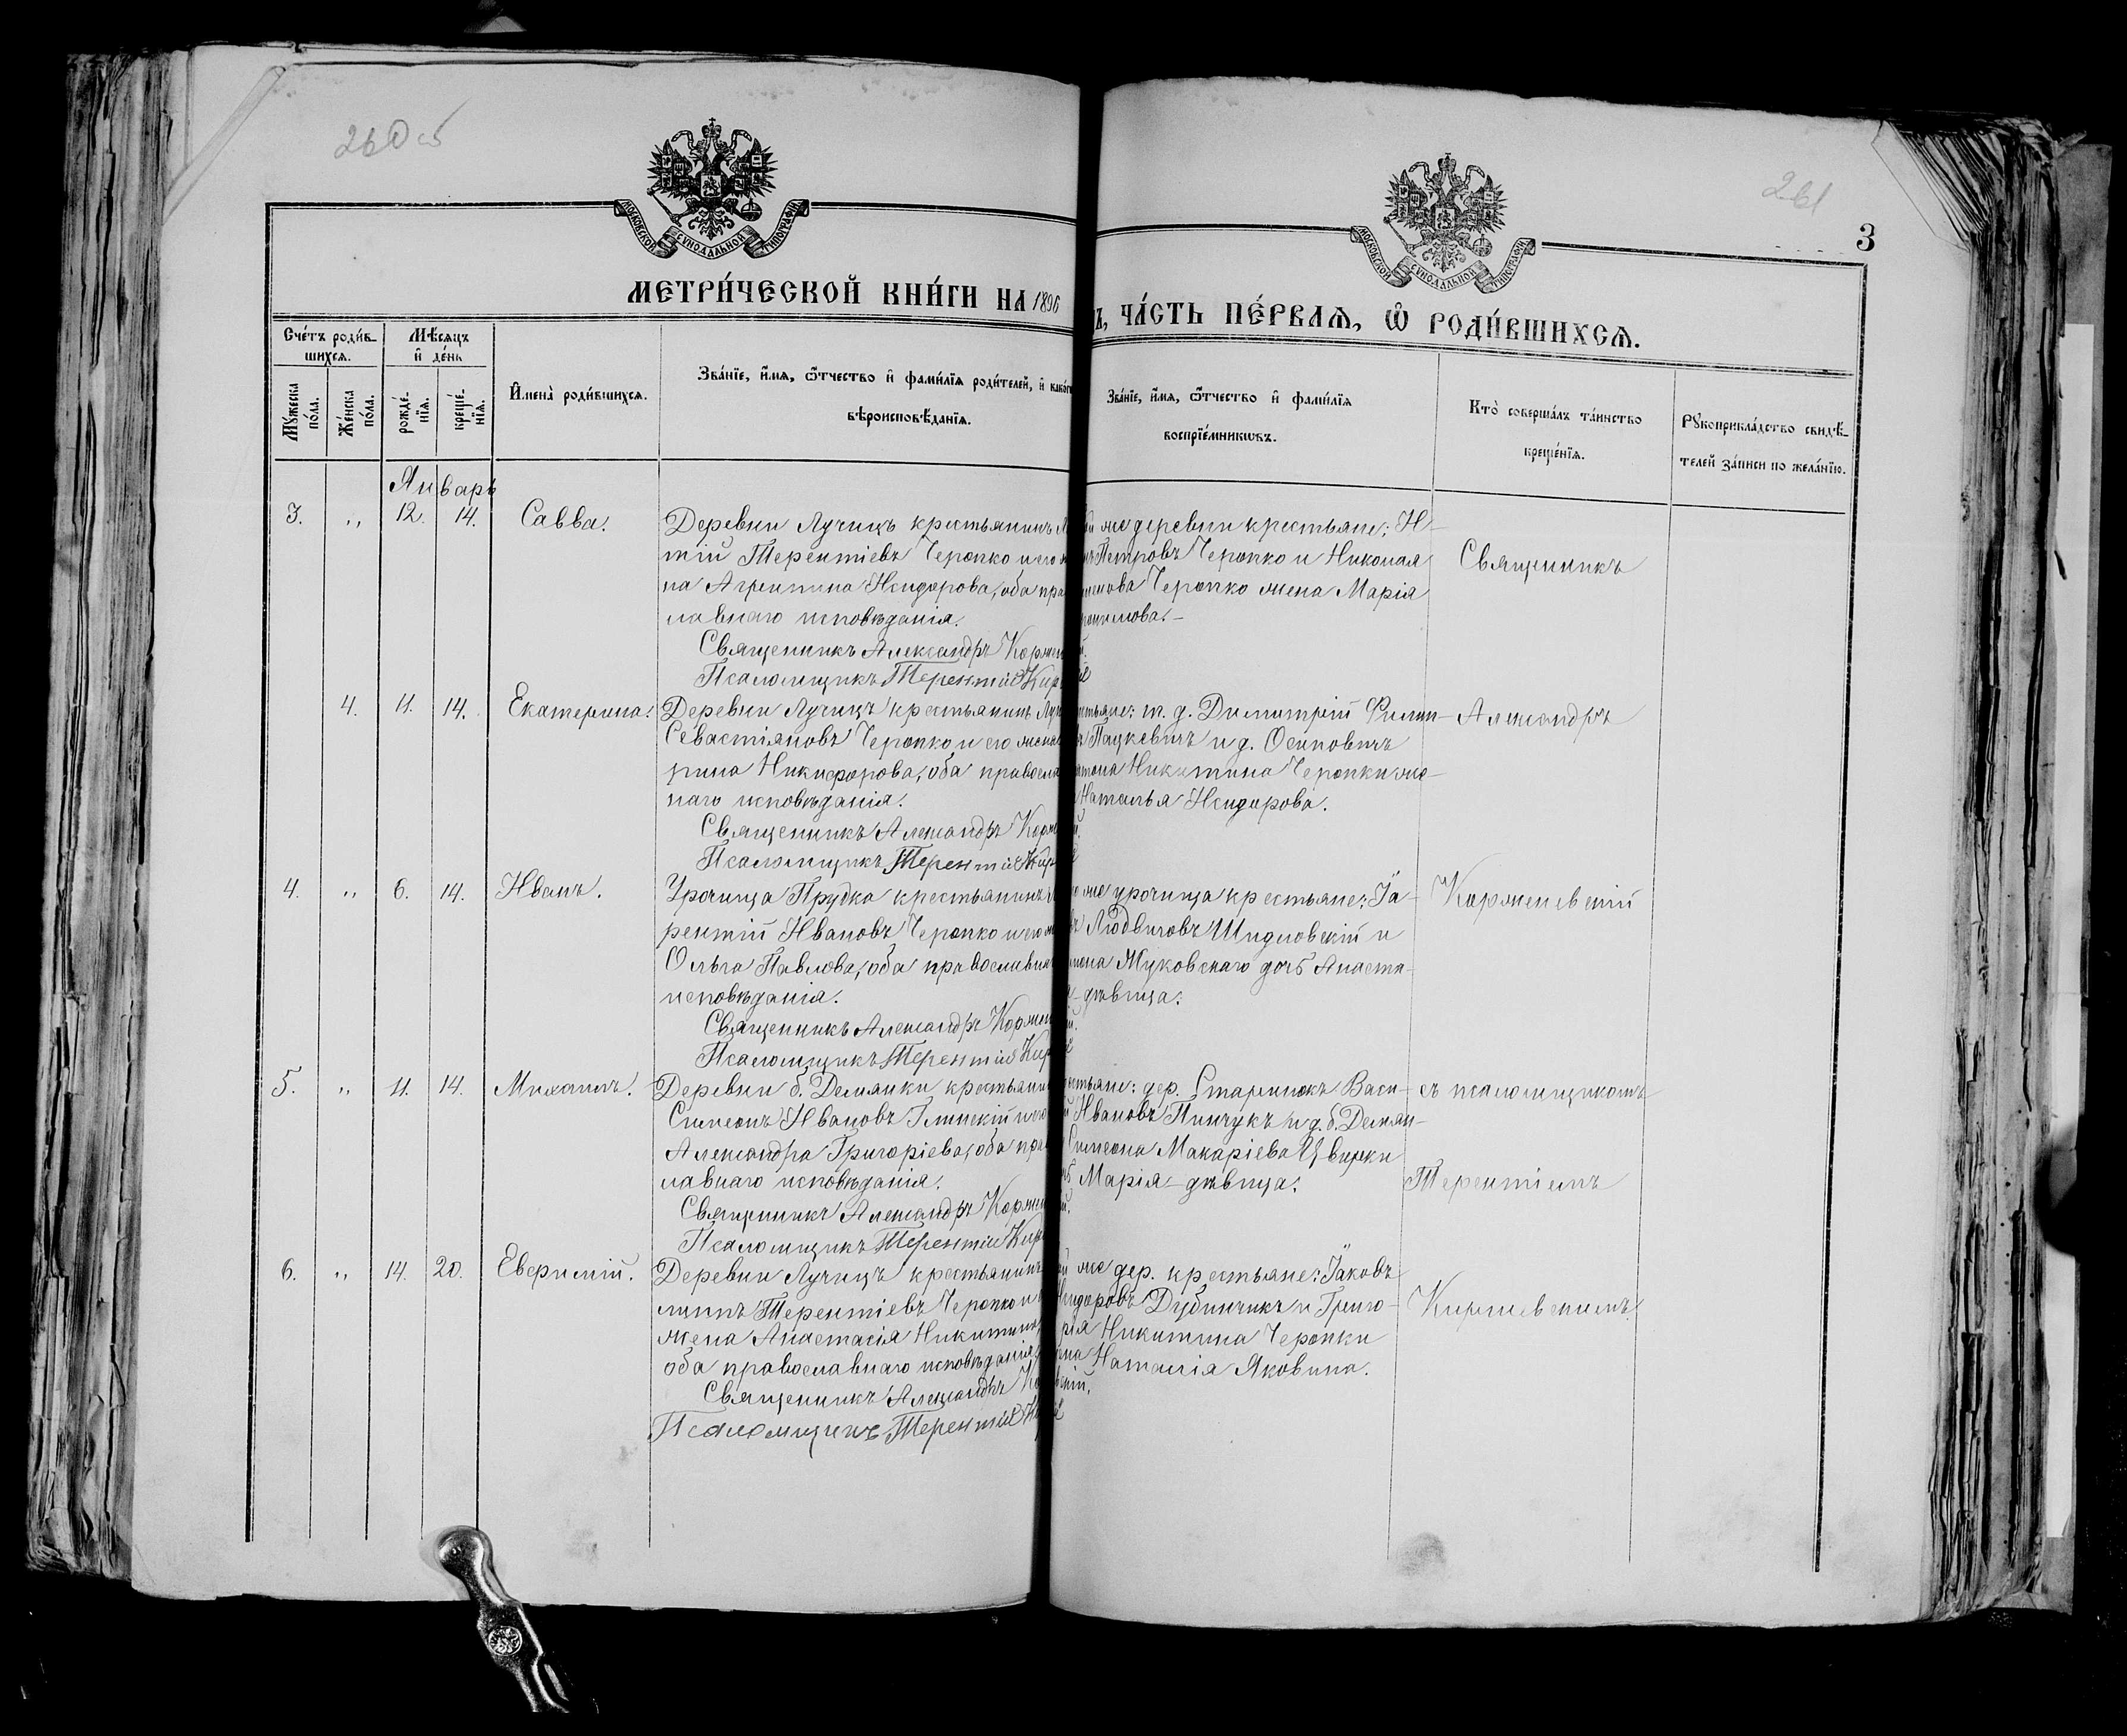 260 об
261
3
МОСКОВСКОЙ СѴНОДАЛЬНОЙ ТИПОГРАФІИ
МОСКОВСКОЙ СѴНОДАЛЬНОЙ ТИПОГРАФІИ
МЕТРИ́ЧЕСКОЙ КНИ́ГИ НА 1896
Ъ, ЧА́СТЬ ПЕ́РВАѦ, Ѡ҆ РОДИ́ВШИХСѦ.
Сче́тъ роди́в-
шихся.
Мѣ́сяцъ
и҆ де́нь
Мꙋ́жеска
по́ла.
Же́нска
по́ла.
рожде́-
нїя.
креще́-
нїя.
И҆мена̀ роди́вшихся.
Зва́нїе, и҆́мя, ѿ́тчество и҆ фами́лїя роди́телей, и҆ како́г
вѣроисповѣ́данїя.
Зва́нїе, и҆́мя, ѿ́тчество и҆ фами́лїя
воспрїе́мникѡвъ.
Кто̀ соверша́лъ та́инство
креще́нїя.
Рꙋкоприкла́дство свидѣ́-
телей за́писи по жела́нїю.
Январь
3. „ 12. 14. Савва.
Деревни Лучицъ крестьянинъ
тій Терентіевъ Черопко и его
на Агрипина Исидорова, оба пра
лавнаго исповѣданія.
Священникъ Александръ Корже
Псаломщикъ Терентій Кир
же деревни крестьяне: И-
Петровъ Черопко и Николая
Черопко жена Марія
Священникъ
4. 11. 14. Екатерина.
Деревни Лучицъ крестьянинъ
Севастіяновъ Черопко и его жена
рина Никифорова, оба правосла
наго исповѣданія.
Священникъ Александръ Корже
Псаломщикъ Терентій Кир
т. д. Димитрій Филип-
Пацкевичъ и д. Осиповичъ
Никитина Черопки же-
Наталья Исидорова.
Александръ
4. „ 6. 14. Иванъ.
Урочища Прудка крестьянинъ
рентій Ивановъ Черопко и его
Ольга Павлова, оба православна
исповѣданія.
Священникъ Александръ Корже
Псаломщикъ Терентій Кир
же урочища крестьяне: Іа-
Людвиговъ Шидловскій и
Жуковскаго дочь Анаста-
дѣвица.
Корженевскій
5. „ 11. 14. Михаилъ.
Деревни б. Демянки крестьяни
Симеонъ Ивановъ Глинскій и его
Александра Григоріева, оба пра
лавнаго исповѣданія.
Священникъ Александръ Корже
Псаломщикъ Терентій Кир
дер. Старинокъ Васи-
Ивановъ Пинчукъ и д. б. Демян-
Симеона Макаріева Цвирки
Марія-дѣвица.
съ псаломщикомъ
Терентіемъ
6. „ 14. 20. Евѳимій.
Деревни Лучицъ крестьянинъ
липпъ Терентіевъ Черопко и
жена Анастасія Никитина,
оба православнаго исповѣданія
Священникъ Александръ Ко
Псаломщикъ Терентій
же дер. крестьяне: Іаковъ
Исидоровъ Дубинчикъ и Григо-
рія Никитина Черопки
Наталія Яковина.